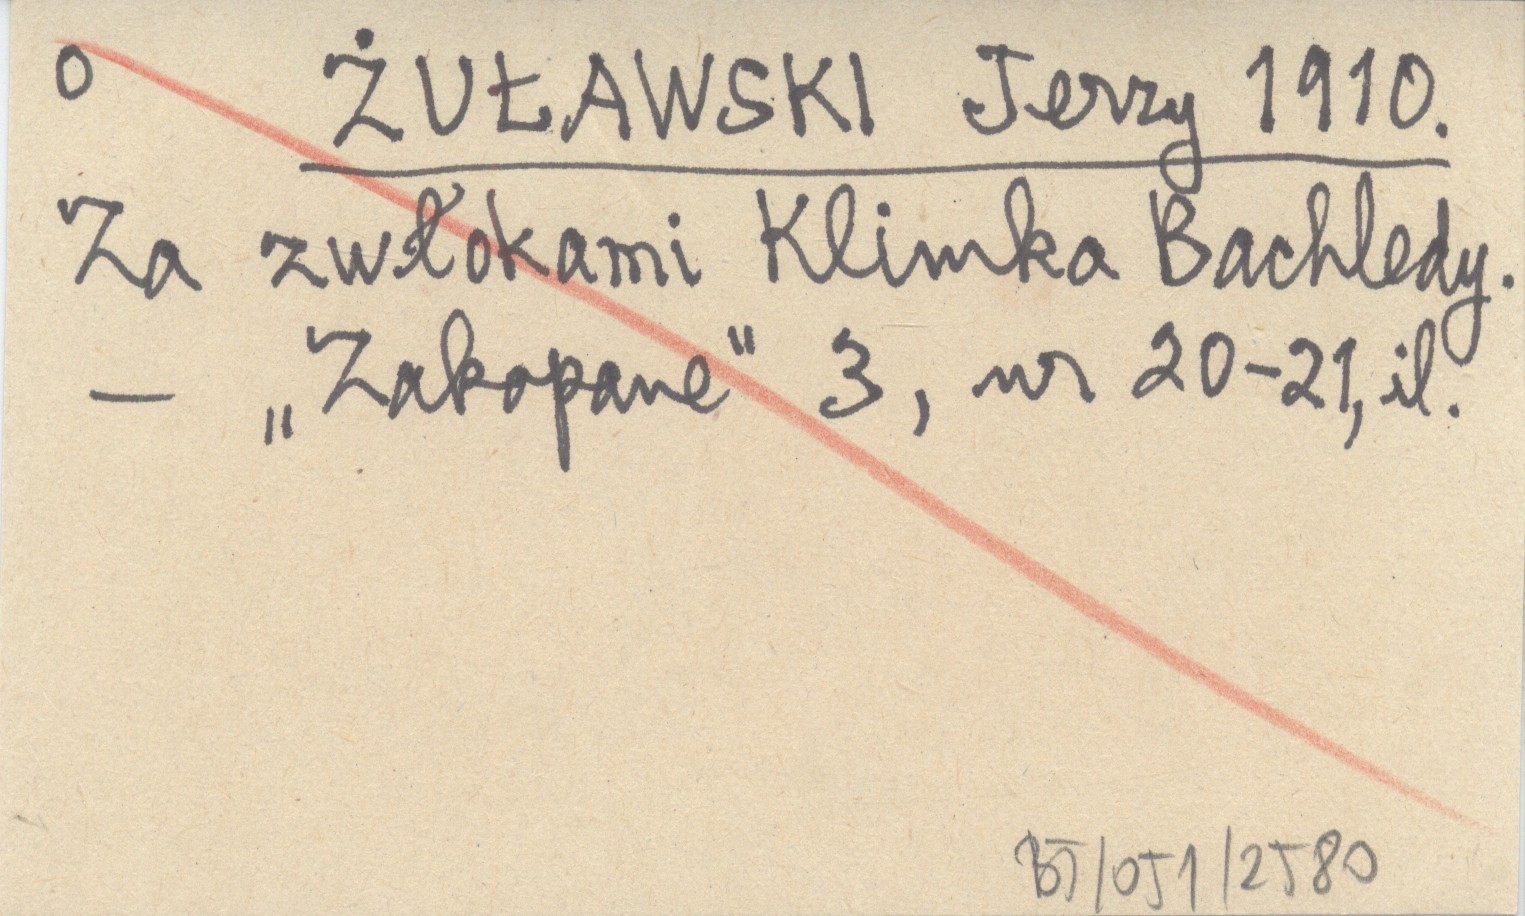 o ŻUŁAWSKI Jerzy 1910.
Za zwłokami Klimka Bachledy.
— „Zakopane" 3, nr 20-21, il.
BJ/051/2580